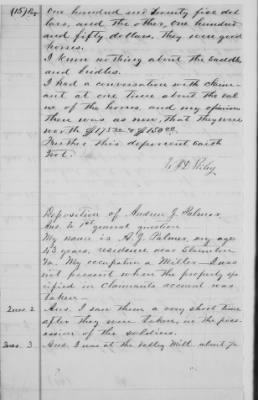 (15) Pay. one hundred and twenty five dol
lars, and the other, one hundred
and fifty dollars. They were good
horses.
I know nothing about the saddles
and bridles.
I had a conversation with claim-
ant at one time about the val
ue of the horses, and my opinion
then was as now, that they were
worth &
Further this deponent saith
not.
Deposition of Andrew J. Palmer.
Ans. to 1st general question
My name is A. J. Palmer, my age
43 years, residence near
Va. My occupation a Miller. I was
not present when the property sp
ecified in Claimants account was
taken.
Ques. 2 Ans. I saw them a very short time
after they were taken, in the poss-
ession of the soldiers.
Ques. 3 Ans. I was at the Valley Mill about